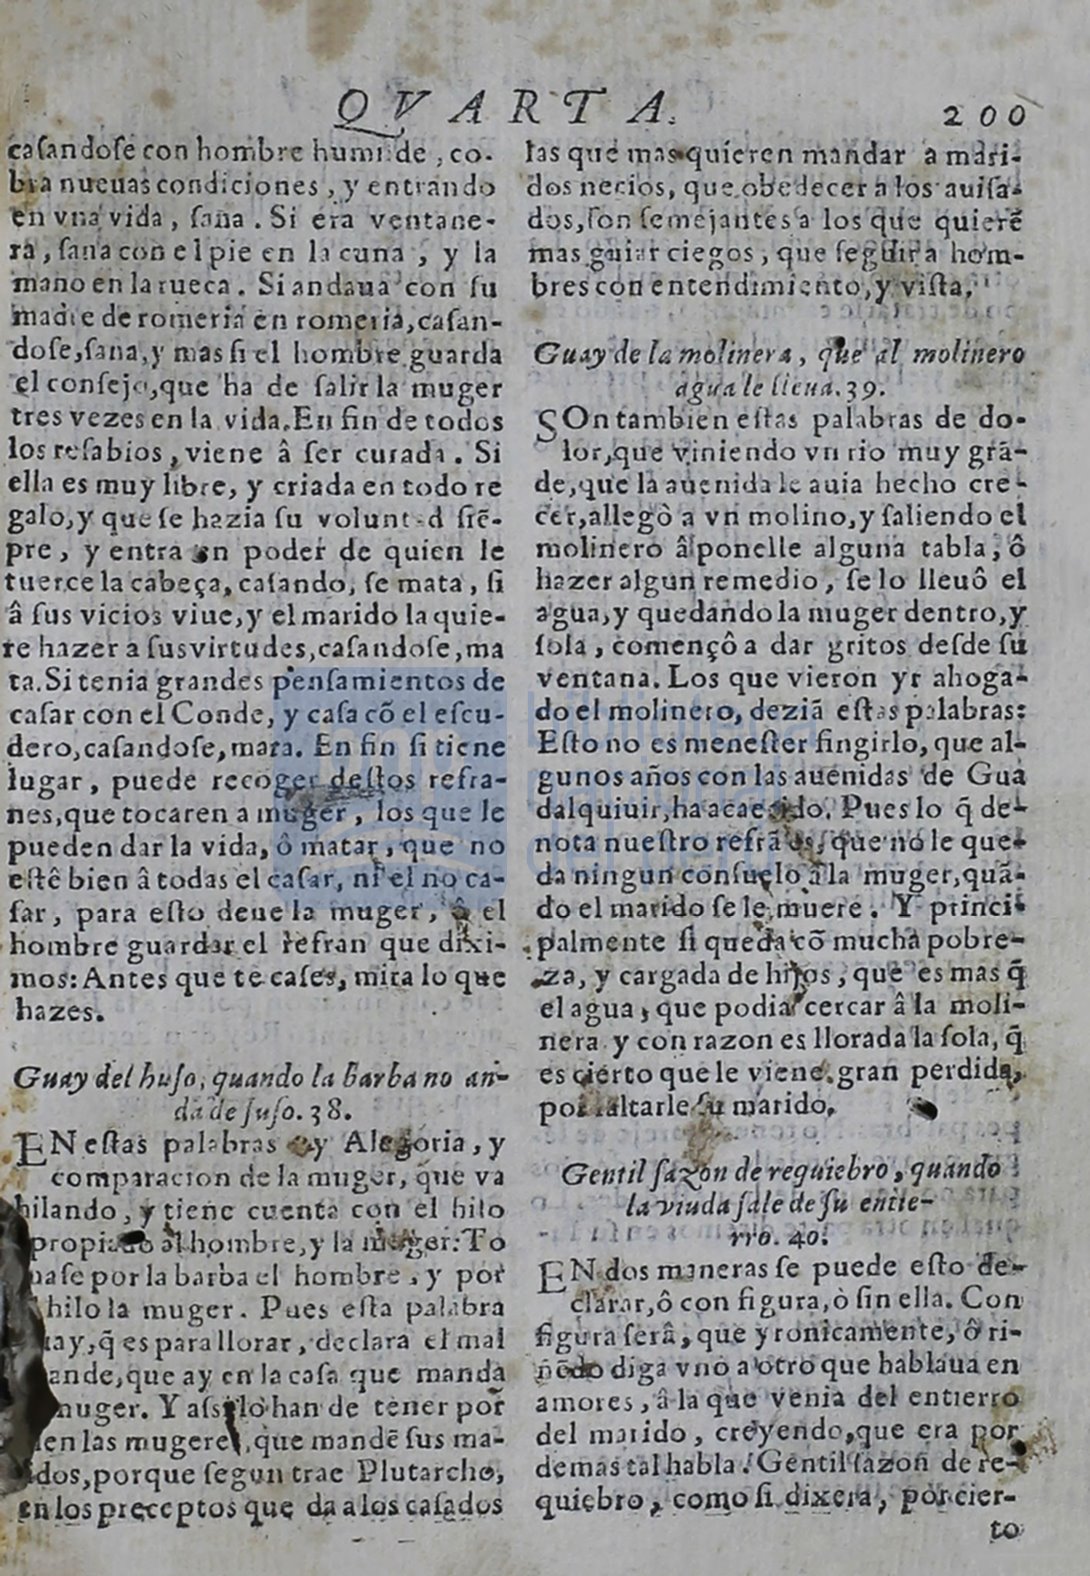 QVARTA. 200
casandose con hombre humilde, co-
bra nueuas condiciones, y entrando
en vna vida, sana. Si era ventane-
ra, sana con el pie en la cuna, y la
mano en la rueca. Si andaua con su
madre de romeria en romeria, casan-
dose, sana, y mas si el hombre guarda
el consejo, que ha de salir la muger
tres vezes en la vida. En fin de todos
los resabios, viene â ser curada. Si
ella es muy libre, y criada en todo re
galo, y que se hazia su voluntad siẽ-
pre, y entra en poder de quien le
tuerce la cabeça, casando, se mata, si
â sus vicios viue, y el marido la quie-
re hazer a sus virtudes, casandose, ma
ta. Si tenia grandes pensamientos de
casar con el Conde, y casa cõ el escu-
dero, casandose, mata. En fin si tiene
lugar, puede recoger destos refra-
nes, que tocaren a muger, los que le
pueden dar la vida, ô matar, que no
estê bien â todas el casar, ni el no ca-
sar, para esto deue la muger, ô el
hombre guardar el refran que dixi-
mos: Antes que te cases, mira lo que
hazes.
Guay del huso, quando la barba no an-
da de suso. 38.
EN estas palabras ay Alegoria, y
comparacion de la muger, que va
hilando, y tiene cuenta con el hilo
propiado al hombre, y la muger: To
mase por la barba el hombre, y por
hilo la muger. Pues esta palabra
guay, q̃ es para llorar, declara el mal
grande, que ay en la casa que manda
muger. Y assi lo han de tener por
bien las mugeres, que mandẽ sus ma-
ridos, porque segun trae Plutarcho,
en los preceptos que da a los casados
las que mas quieren mandar a mari-
dos necios, que obedecer a los auisa-
dos, son semejantes a los que quierẽ
mas guiar ciegos, que seguir a hom-
bres con entendimiento, y vista.
Guay de la molinera, que al molinero
agua le lieua. 39.
SOn tambien estas palabras de do-
lor, que viniendo vn rio muy grã-
de, que la auenida le auia hecho cre-
cer, allegò a vn molino, y saliendo el
molinero â ponelle alguna tabla, ô
hazer algun remedio, se lo lleuô el
agua, y quedando la muger dentro, y
sola, començô a dar gritos desde su
ventana. Los que vieron yr ahoga-
do el molinero, deziã estas palabras:
Esto no es menester fingirlo, que al-
gunos años con las auenidas de Gua
dalquiuir, ha acaecido. Pues lo q̃ de-
nota nuestro refrã es, que no le que-
da ningun consuelo â la muger, quã-
do el marido se le muere. Y princi-
palmente si queda cõ mucha pobre-
za, y cargada de hijos, que es mas q̃
el agua, que podia cercar â la moli-
nera y con razon es llorada la sola, q̃
es cierto que le viene gran perdida,
por faltarle su marido.
Gentil sazon de requiebro, quando
la viuda sale de su entie-
rro. 40.
EN dos maneras se puede esto de-
clarar, ô con figura, ò sin ella. Con
figura serâ, que yronicamente, ô ri-
ñẽdo diga vno a otro que hablaua en
amores, â la que venia del entierro
del marido, creyendo, que era por
demas tal habla. Gentil sazon de re-
quiebro, como si dixera, por cier-
to